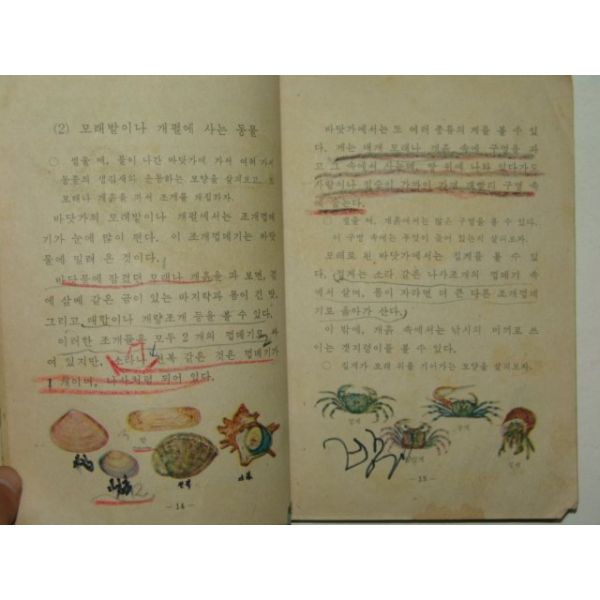 (2) 모래밭이나 개펄에 사는 동물
○ 썰물 때, 물이 나간 바닷가에 가서 여러 가지
동물의 생김새와 운동하는 모양을 살펴보고, 또
모래나 개흙을 파서 조개를 채집하자.
바닷가의 모래밭이나 개펄에서는 조개껍데
기가 눈에 많이 띈다. 이 조개껍데기는 바닷
물에 밀려 온 것이다.
바닷물에 잠겼던 모래나 개흙을 파 보면, 겉
에 삼베 같은 금이 있는 바지락과 몸이 긴 맛,
그리고 대합이나 개량조개 등을 볼 수 있다.
이러한 조개들은 모두 2 개의 껍데기로
어 있지만, 소라나 전복 같은 것은 껍데기가
1 개이며, 나사처럼 되어 있다.
맛
전복
소라
2
- 14 -
바닷가에서는 또 여러 종류의 게를 볼 수 있
다. 게는 대개 모래나 개흙 속에 구멍을 파
고 그 속에서 사는데, 땅 위에 나와 있다가도
사람이나 짐승이 가까이 가면 재빨리 구멍 속
에 숨는다.
○ 썰물 때, 개흙에서는 많은 구멍을 볼 수 있다.
이 구멍 속에는 무엇이 들어 있는지 살펴보자.
모래로 된 바닷가에서는 집게를 볼 수 있
다. 집게는 소라 같은 나사조개의 껍데기 속
에서 살며, 몸이 자라면 더 큰 다른 조개껍데
기로 옮아가 산다.
이 밖에, 개흙 속에서는 낚시의 미끼로 쓰
이는 갯지렁이를 볼 수 있다.
○ 집게가 모래 위를 기어가는 모양을 살펴보자.
집게
- 15 -